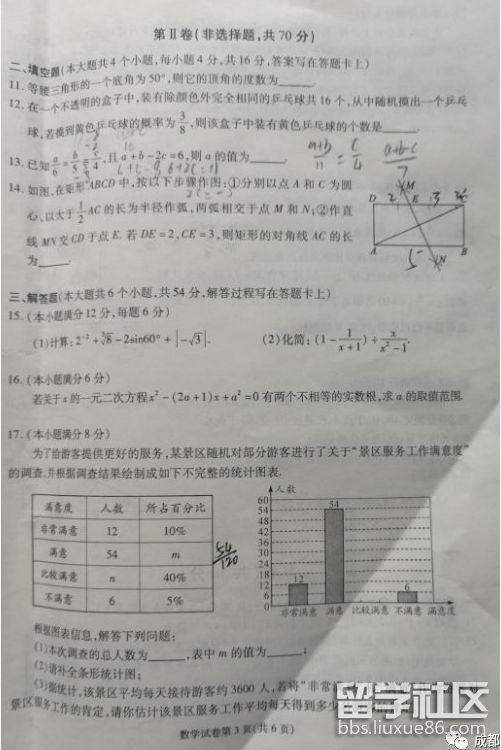 第Ⅱ卷(非选择题,共70分)
二、填空题(本大题共4个小题,每小题4分,共16分,答案写在答题卡上)
11. 等腰三角形的一个底角为50°,则它的顶角的度数为______.
12. 在一个不透明的盒子中,装有除颜色外完全相同的乒乓球共16个,从中随机摸出一个乒乓
球,若摸到黄色乒乓球的概率为3/8,则该盒子中装有黄色乒乓球的个数是______.
13. 已知a/6=b/5=c/4,且a+b-2c=6,则a的值为______.
a+b/11=c/4 a+b-c/7
14. 如图,在矩形ABCD中,按以下步骤作图:①分别以点A和C为圆
心,以大于1/2AC的长为半径作弧,两弧相交于点M和N;②作直
线MN交CD于点E.若DE=2,CE=3,则矩形的对角线AC的长
为______.
M
D 2 E 3
A 5 N B
三、解答题(本大题共6个小题,共54分,解答过程写在答题卡上)
15. (本小题满分12分,每题6分)
(1)计算:2⁻²+∛8-2sin60°+|-√3|. (2)化简:(1-1/(x+1))÷x/(x²-1).
16. (本小题满分6分)
若关于x的一元二次方程x²-(2a+1)x+a²=0有两个不相等的实数根,求a的取值范围.
17. (本小题满分8分)
为了给游客提供更好的服务,某景区随机对部分游客进行了关于“景区服务工作满意度”
的调查,并根据调查结果绘制成如下不完整的统计图表.
满意度 人数 所占百分比
非常满意 12 10%
满意 54 m
比较满意 n 40%
不满意 6 5%
54/120
人数
60
54
48
42
36
30
24
18
12
6
0
12 54 6
非常满意 满意 比较满意 不满意 满意度
根据图表信息,解答下列问题:
(1)本次调查的总人数为______,表中m的值为______;
(2)请补全条形统计图;
(3)据统计,该景区平均每天接待游客约3600人,若将“非常
景区服务工作的肯定,请你估计该景区服务工作平均每天得到多少
数学试卷第3页(共6页)
留学社区
bbs.liuxue86.com
成都